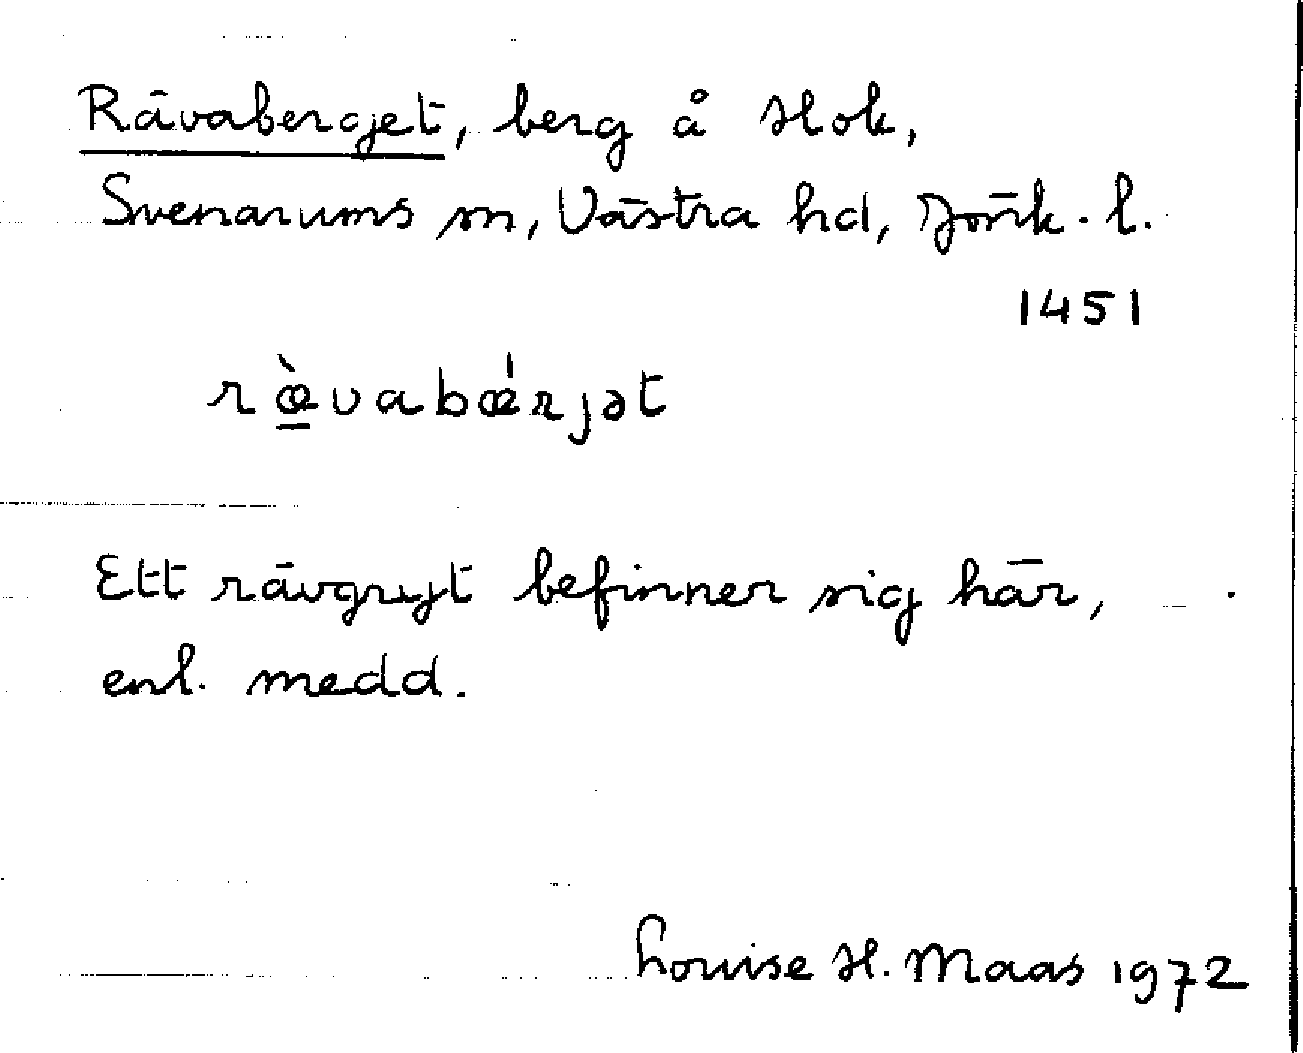 Rävaberget, berg å Hok,
Svenarums sn, Västra hd, Jönk. l.
1451
ræ̀vabǽrjət
Ett rävgryt befinner sig här,
enl. medd.
Louise H. Maas 1972